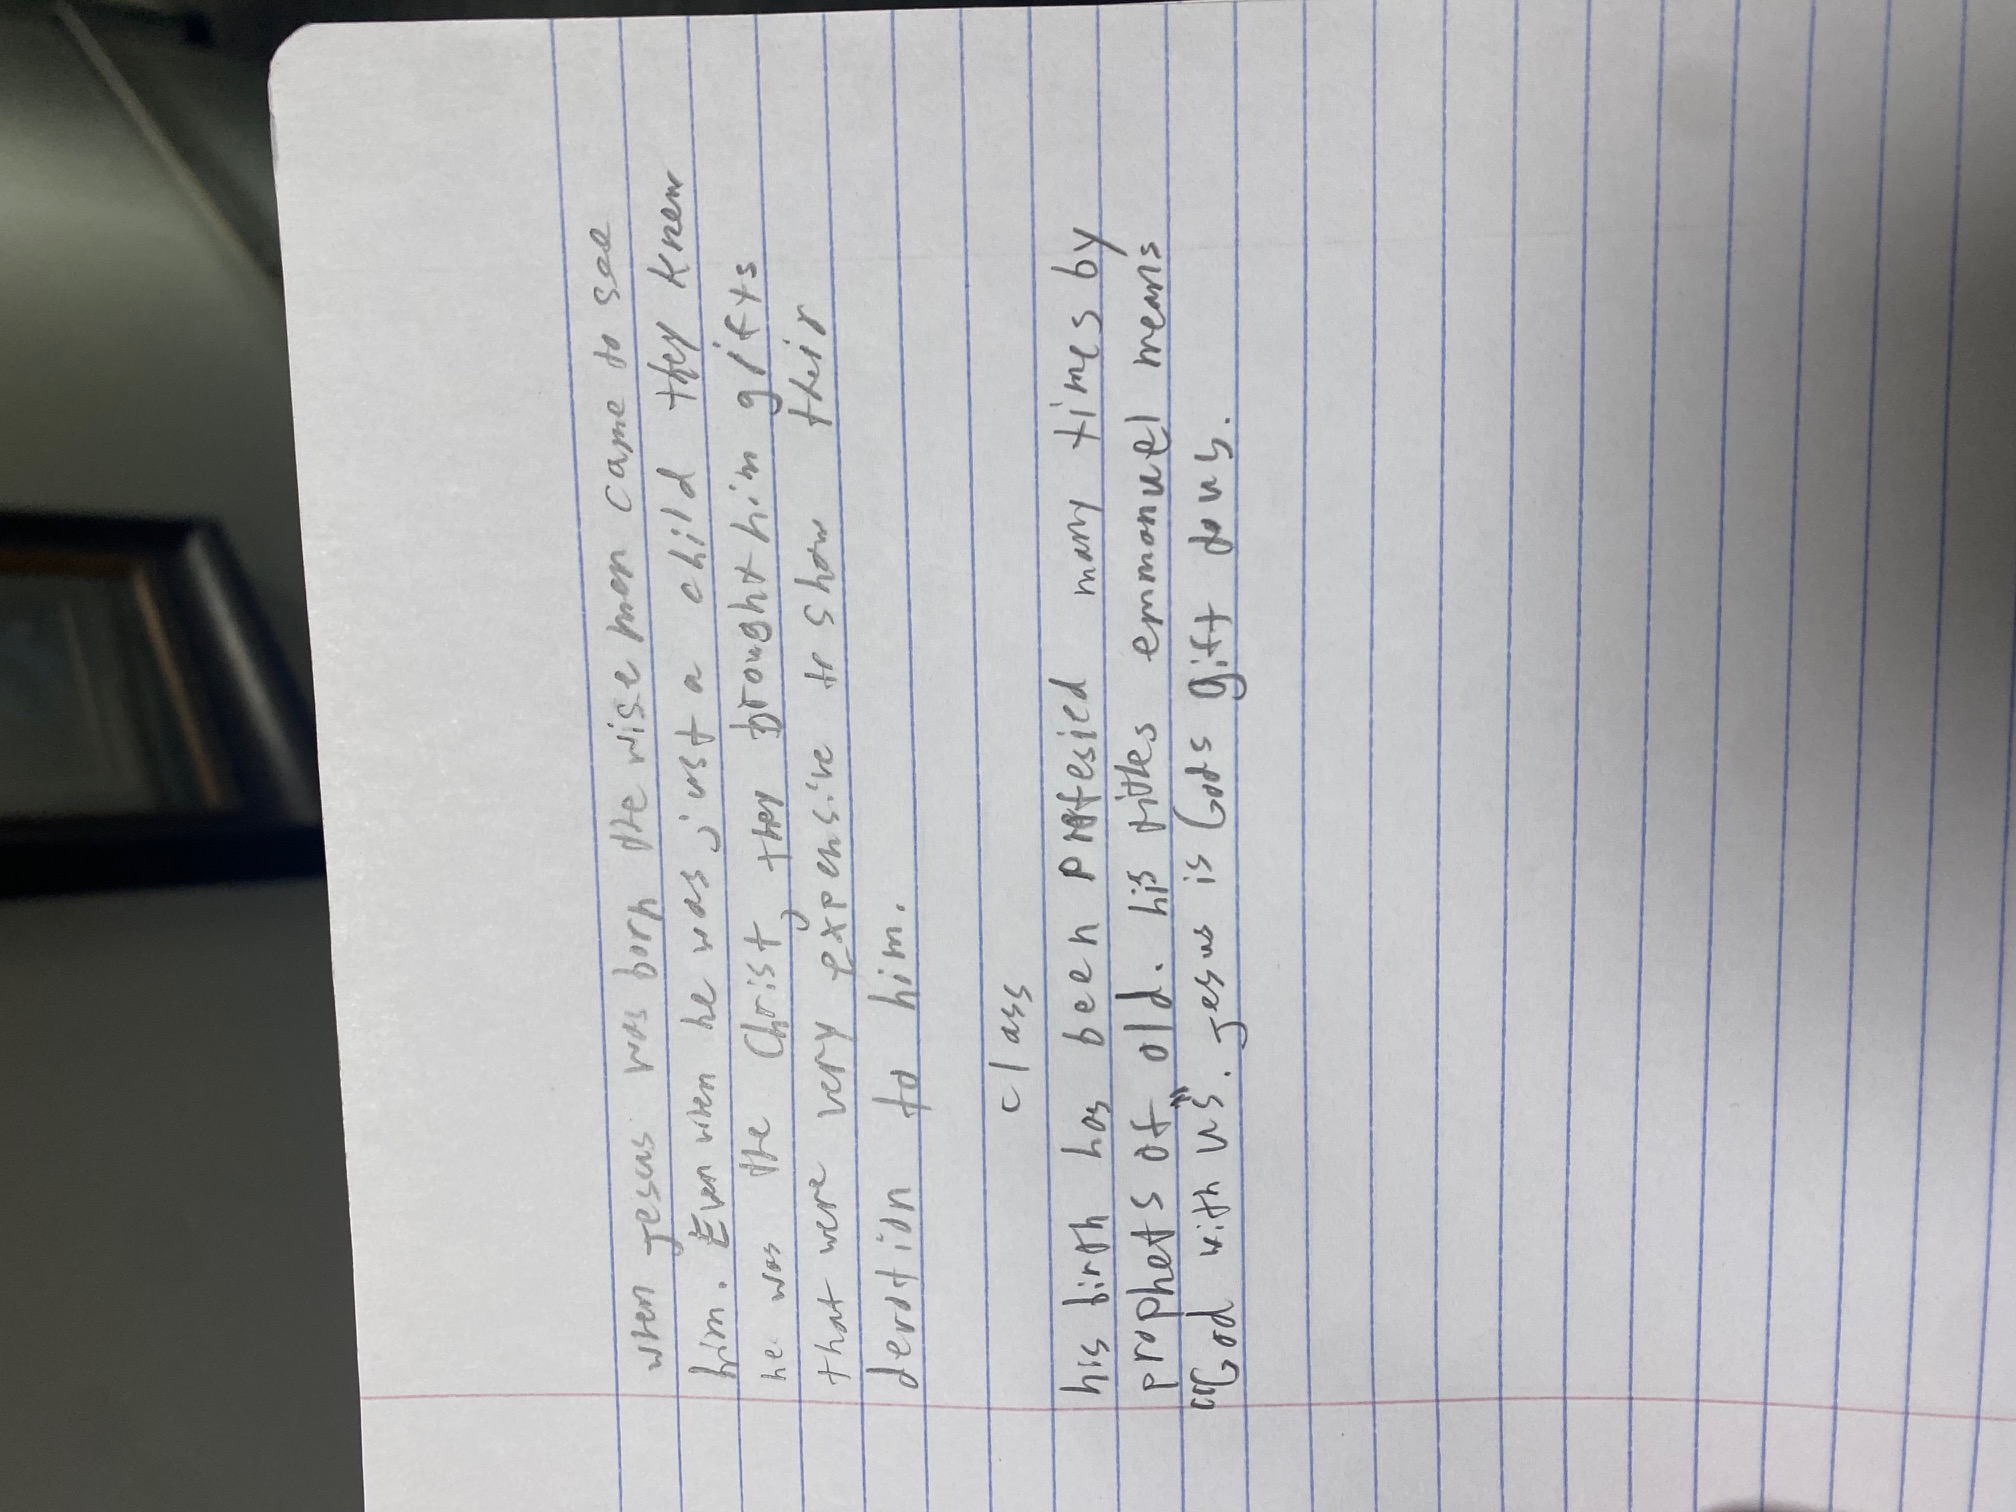 when Jesus was born the wise men came to see
him. Even when he was just a child they knew
he was the Christ, they brought him gifts
that were very expensive to show their
devotion to him.
class
his birth has been profesied many times by
prophets of old. his titles emmanuel means
"God with us". Jesus is Gods gift to us.